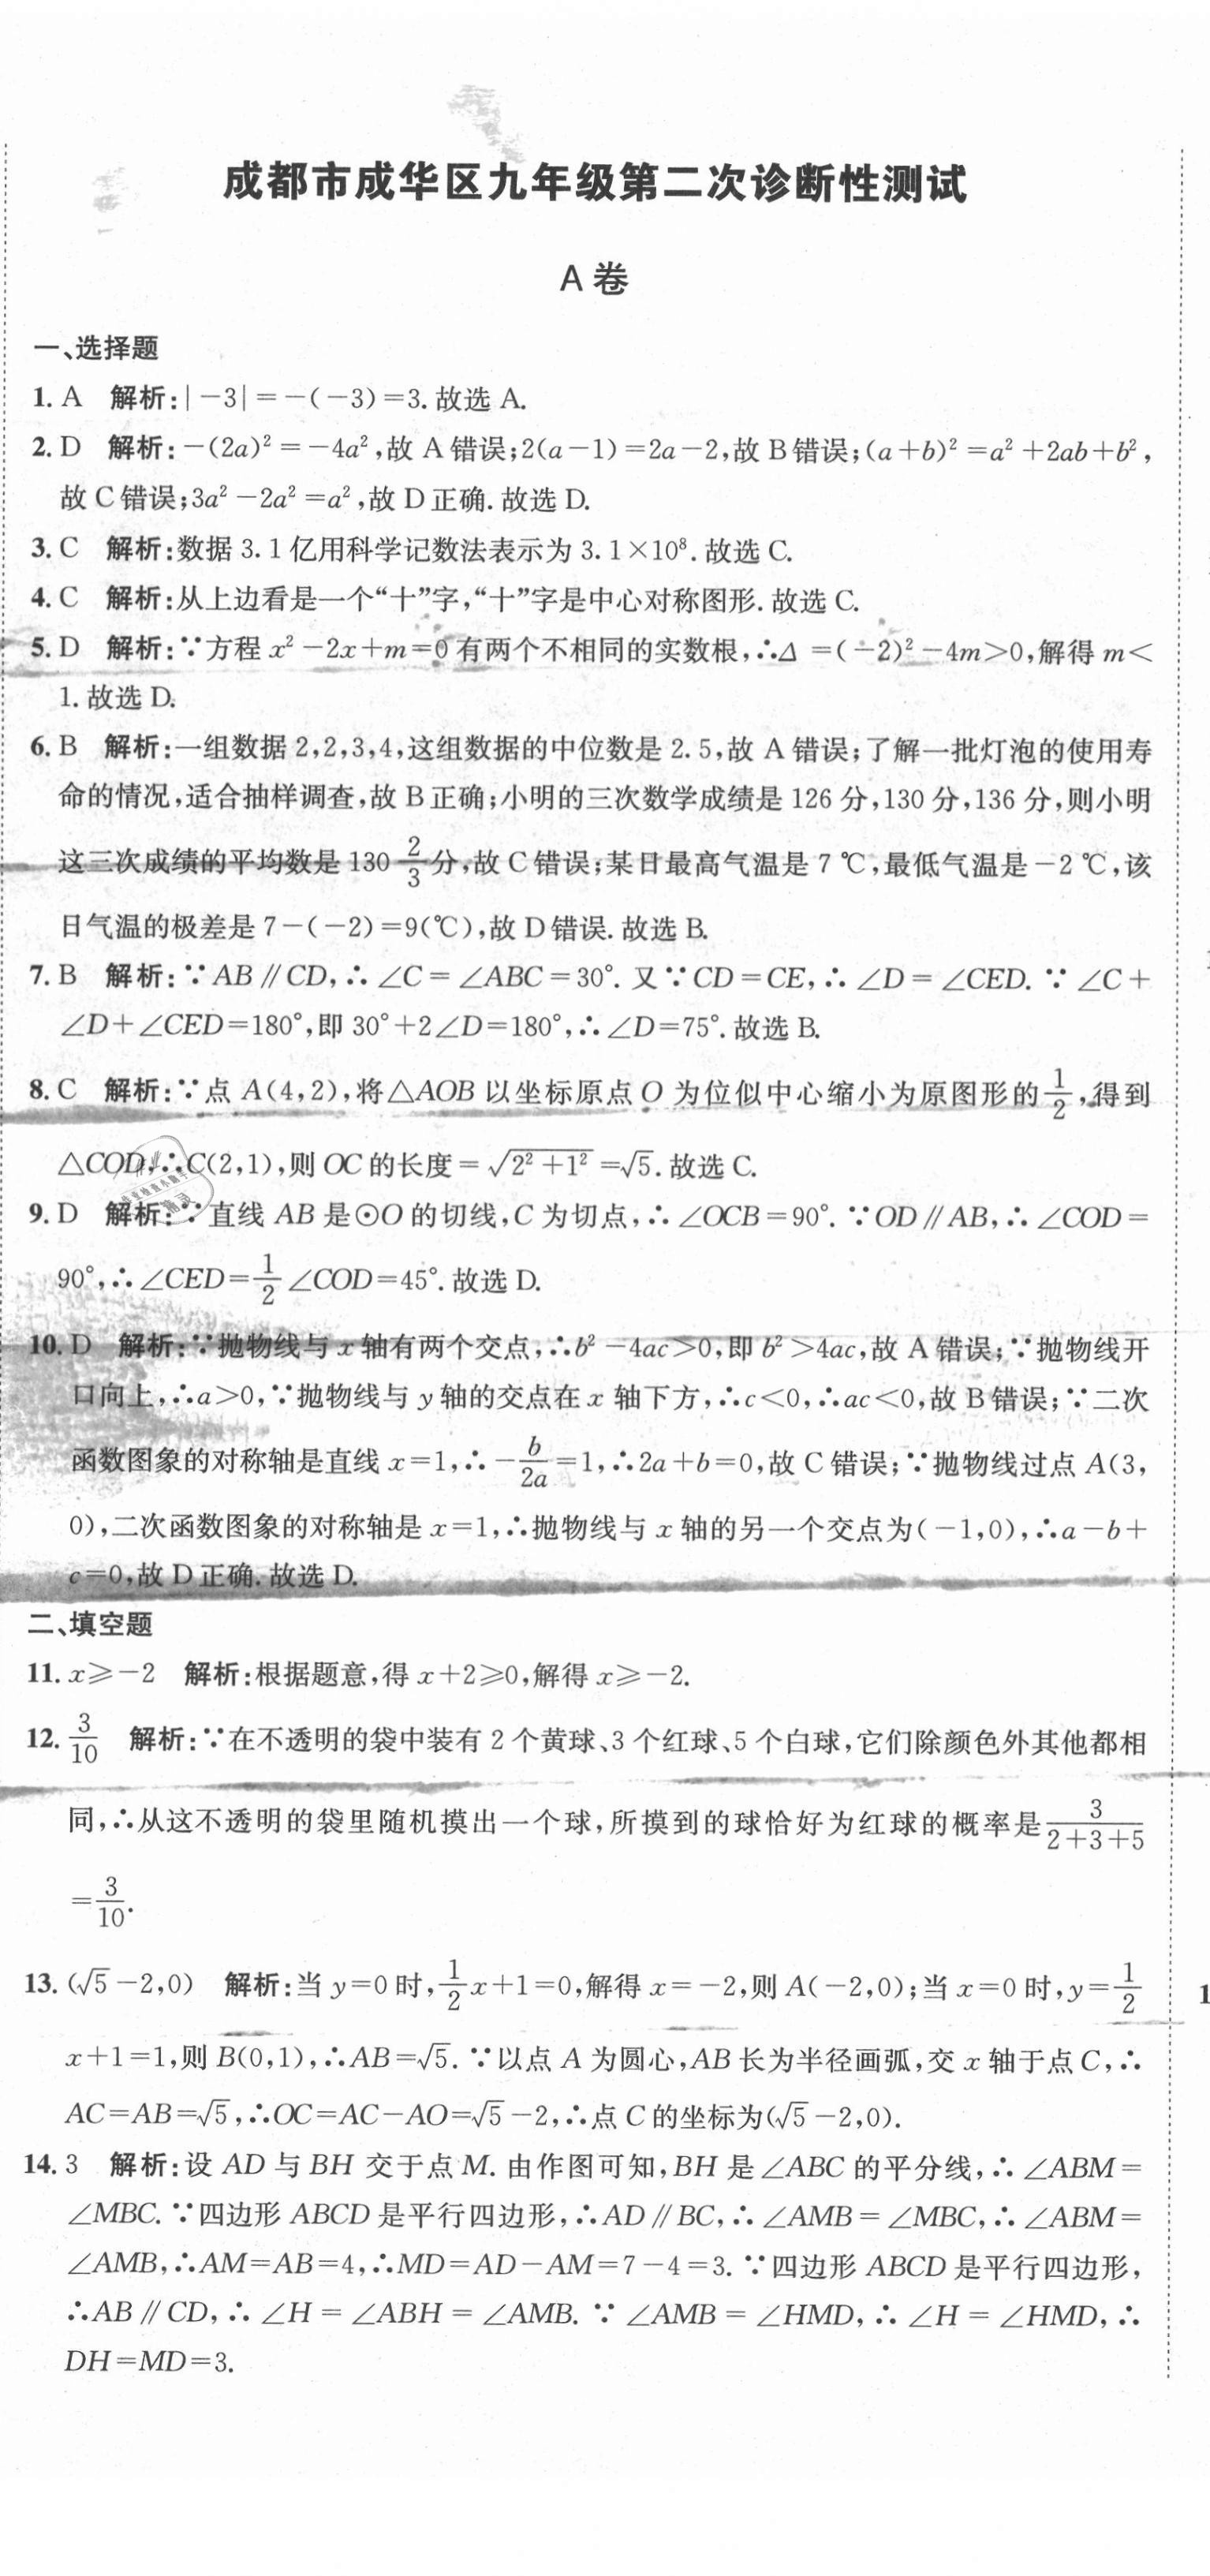 成都市成华区九年级第二次诊断性测试
A 卷
一、选择题
1. A 解析:|−3|=−(−3)=3.故选 A.
2. D 解析:−(2a)²=−4a²,故 A 错误;2(a−1)=2a−2,故 B 错误;(a+b)²=a²+2ab+b²,
故 C 错误;3a²−2a²=a²,故 D 正确.故选 D.
3. C 解析:数据 3.1 亿用科学记数法表示为 3.1×10⁸.故选 C.
4. C 解析:从上边看是一个“十”字,“十”字是中心对称图形.故选 C.
5. D 解析:∵方程 x²−2x+m=0 有两个不相同的实数根,∴Δ =(−2)²−4m>0,解得 m<
1.故选 D.
6. B 解析:一组数据 2,2,3,4,这组数据的中位数是 2.5,故 A 错误;了解一批灯泡的使用寿
命的情况,适合抽样调查,故 B 正确;小明的三次数学成绩是 126 分,130 分,136 分,则小明
这三次成绩的平均数是 130 2/3 分,故 C 错误;某日最高气温是 7 ℃,最低气温是−2 ℃,该
日气温的极差是 7−(−2)=9(℃),故 D 错误.故选 B.
7. B 解析:∵AB∥CD,∴∠C=∠ABC=30°.又∵CD=CE,∴∠D=∠CED.∵∠C+
∠D+∠CED=180°,即 30°+2∠D=180°,∴∠D=75°.故选 B.
8. C 解析:∵点 A(4,2),将△AOB 以坐标原点 O 为位似中心缩小为原图形的 1/2,得到
△COD,∴C(2,1),则 OC 的长度=√(2²+1²)=√5.故选 C.
9. D 解析:∵直线 AB 是⊙O 的切线,C 为切点,∴∠OCB=90°.∵OD∥AB,∴∠COD=
90°,∴∠CED=1/2∠COD=45°.故选 D.
10. D 解析:∵抛物线与 x 轴有两个交点,∴b²−4ac>0,即 b²>4ac,故 A 错误;∵抛物线开
口向上,∴a>0,∵抛物线与 y 轴的交点在 x 轴下方,∴c<0,∴ac<0,故 B 错误;∵二次
函数图象的对称轴是直线 x=1,∴−b/2a=1,∴2a+b=0,故 C 错误;∵抛物线过点 A(3,
0),二次函数图象的对称轴是 x=1,∴抛物线与 x 轴的另一个交点为(−1,0),∴a−b+
c=0,故 D 正确.故选 D.
二、填空题
11. x≥−2 解析:根据题意,得 x+2≥0,解得 x≥−2.
12. 3/10 解析:∵在不透明的袋中装有 2 个黄球、3 个红球、5 个白球,它们除颜色外其他都相
同,∴从这不透明的袋里随机摸出一个球,所摸到的球恰好为红球的概率是 3/(2+3+5)
=3/10.
13. (√5−2,0) 解析:当 y=0 时,1/2x+1=0,解得 x=−2,则 A(−2,0);当 x=0 时,y=1/2
x+1=1,则 B(0,1),∴AB=√5.∵以点 A 为圆心,AB 长为半径画弧,交 x 轴于点 C,∴
AC=AB=√5,∴OC=AC−AO=√5−2,∴点 C 的坐标为(√5−2,0).
14. 3 解析:设 AD 与 BH 交于点 M.由作图可知,BH 是∠ABC 的平分线,∴∠ABM=
∠MBC.∵四边形 ABCD 是平行四边形,∴AD∥BC,∴∠AMB=∠MBC,∴∠ABM=
∠AMB,∴AM=AB=4,∴MD=AD−AM=7−4=3.∵四边形 ABCD 是平行四边形,
∴AB∥CD,∴∠H=∠ABH=∠AMB.∵∠AMB=∠HMD,∴∠H=∠HMD,∴
DH=MD=3.